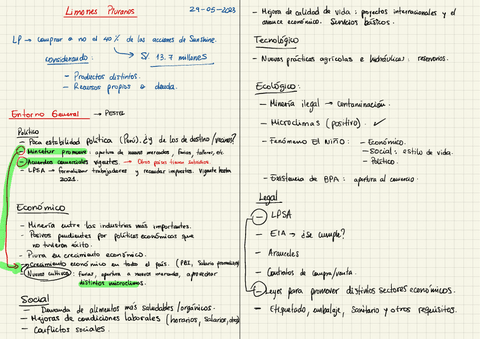 Limones Piuranos
29-05-2023
LP → comprar o no el 40% de las acciones de Sunshine.
considerando:
S/. 13.7 millones
- Productos distintos.
- Recursos propios o deuda.
Entorno General → PESTEL
Político
- Poca estabilidad política (Perú). ¿y de los de destino/vecinos?
- Mincetur promueve: apertura de nuevos mercados, ferias, talleres, etc
- Acuerdos comerciales vigentes. → Otros países tienen subsidios.
- LPSA → formalizar trabajadores y recaudar impuestos. Vigente hasta
2021.
Económico
- Minería entre las industrias más importantes.
- Pasivos pendientes por políticas económicas que
no tuvieron éxito.
- Piura en crecimiento económico.
- Crecimiento económico en todo el país. (PBI, Salario promedio)
- Nuevos cultivos: ferias, apertura a nuevos mercados, aprovechar
distintos microclimas.
Social
- Demanda de alimentos más saludables/orgánicos.
- Mejoras de condiciones laborales (horarios, salarios, etc)
- Conflictos sociales.
- Mejora de calidad de vida: proyectos internacionales y el
avance económico. Servicios básicos.
Tecnológico
- Nuevas prácticas agrícolas e hidráulicas: reservorios.
Ecológico:
- Minería ilegal → contaminación.
- Microclimas (positivo). ✓
- Fenómeno El Niño: - Económico.
- Social, estilo de vida.
- Político.
- Existencia de BPA: apertura al comercio.
Legal
- LPSA
- EIA → ¿Se cumple?
- Aranceles
- Contratos de compra/venta.
- Leyes para promover distintos sectores económicos.
- Etiquetado, embalaje, sanitario y otros requisitos.